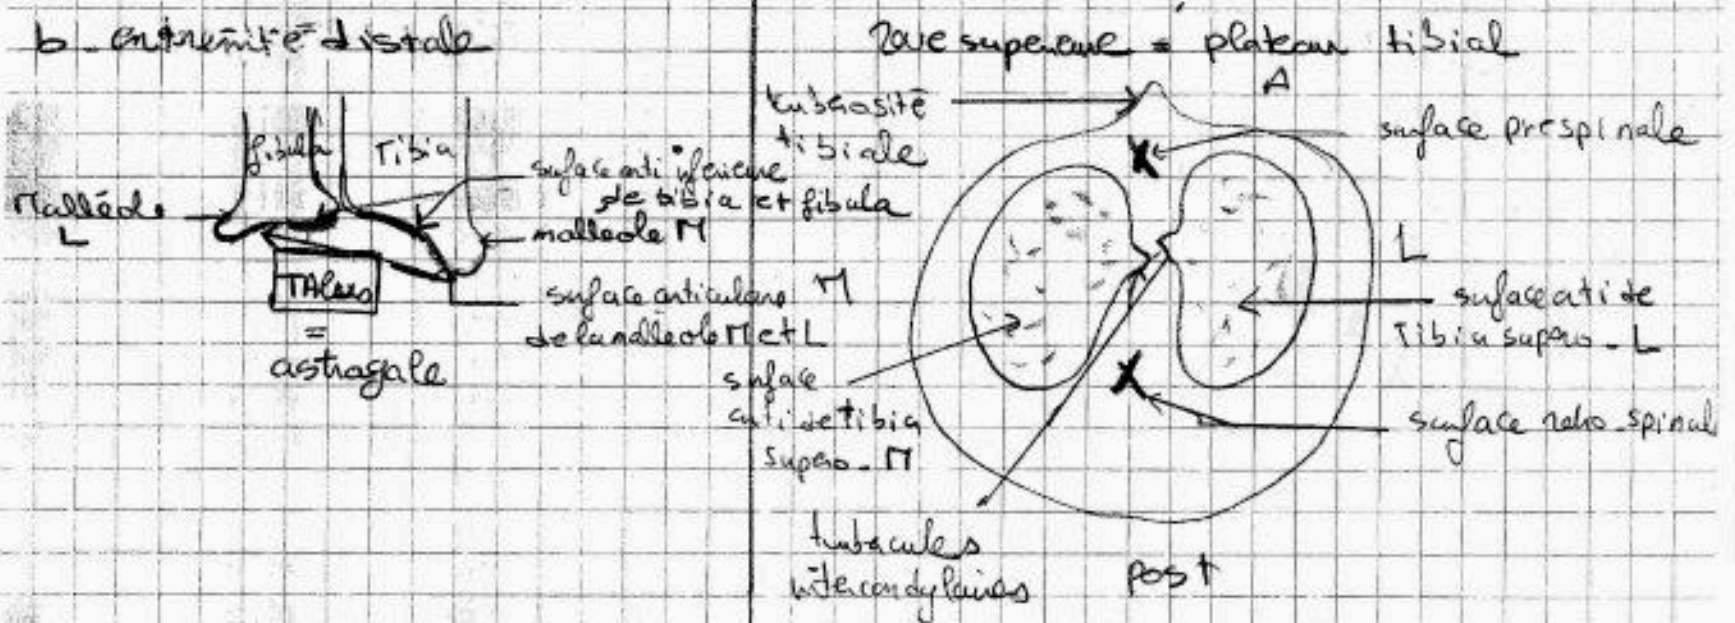 b - extremité distale
fibula
Tibia
Malléole
L
surface arti inferieure
de tibia et fibula
malleole M
TALus
=
astragale
surface articulaire M
de la malleole M et L
Face superieure = plateau tibial
A
tuberosité
tibiale
surface prespinale
L
surface arti de
Tibia supero - L
surface retro-spinal
surface
arti de tibia
supero - M
tubercules
intercondylaires
post